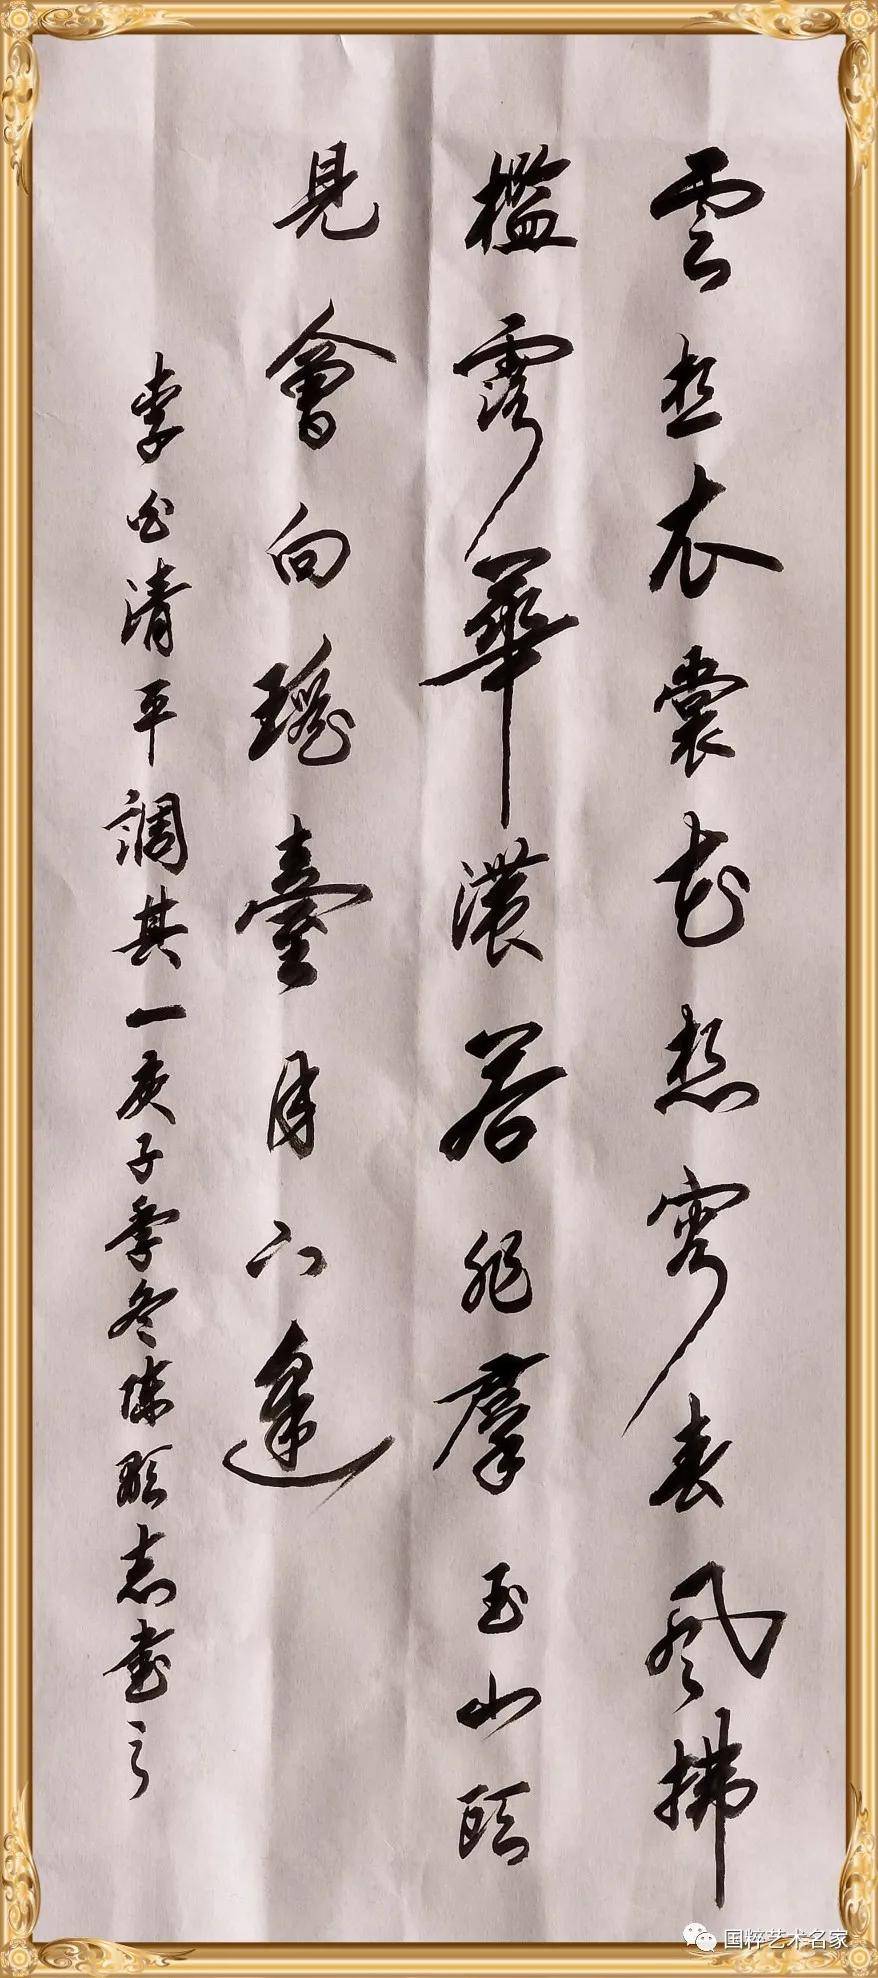 雲想衣裳花想容春風拂
檻露華濃若非羣玉山頭
見會向瑤臺月下逢
李白清平調其一庚子季冬陳志書之
国粹艺术名家